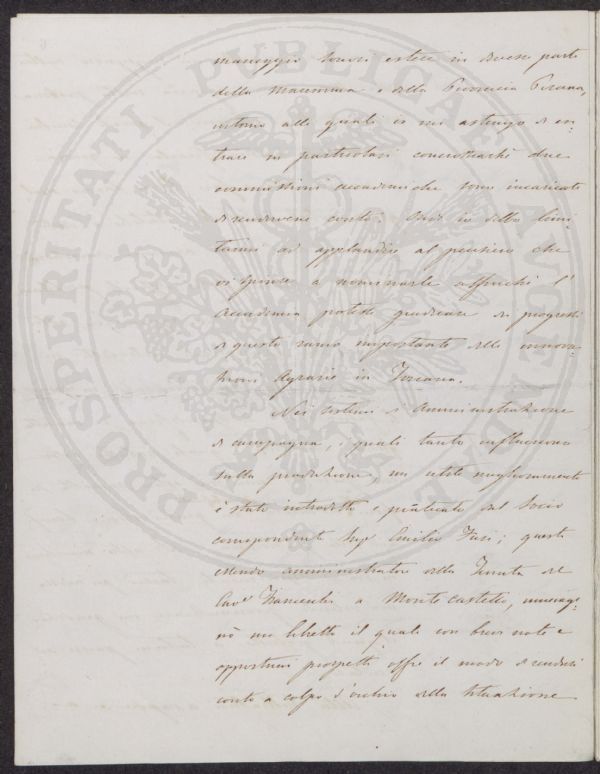 maneggio lavori estesi in diverse parti
della Maremma e della Provincia Pisana,
intorno alle quali io mi astengo d'en-
trare in particolari concios­siachè due
commissioni accademiche sono incaricate
di renderne conto. Onde io debbo limi-
tarmi ad applaudire al pensiero che
vi spinse a nominarle affinchè l'
Accademia potesse giudicare dei progressi
di questo ramo importante delle innova-
zioni Agrarie in Toscana.
Nei sistemi d'Amministrazione
di campagna, i quali tanto influiscono
sulla produzione, un utile miglioramento
è stato introdotto e praticato dal Socio
corrispondente Sigr Emilio Fusi; questi
essendo amministratore della Tenuta del
Cave a Monte Castello, immagi-
nò un libretto il quale con brevi note e
opportuni prospetti offre il modo di rendersi
conto a colpo d'occhio della situazione
PROSPERITATI PUBLICAE AUGENDAE